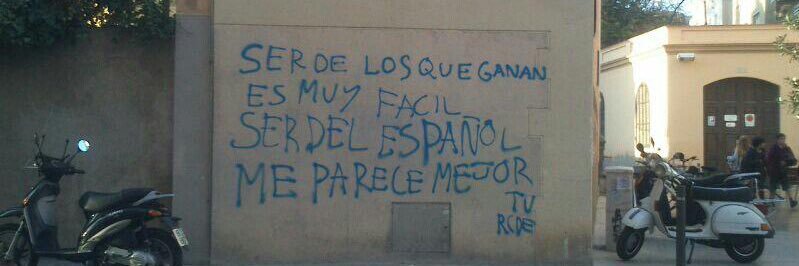 SER DE LOS QUE GANAN
ES MUY FACIL
SER DEL ESPAÑOL
ME PARECE MEJOR
TU
RCDE